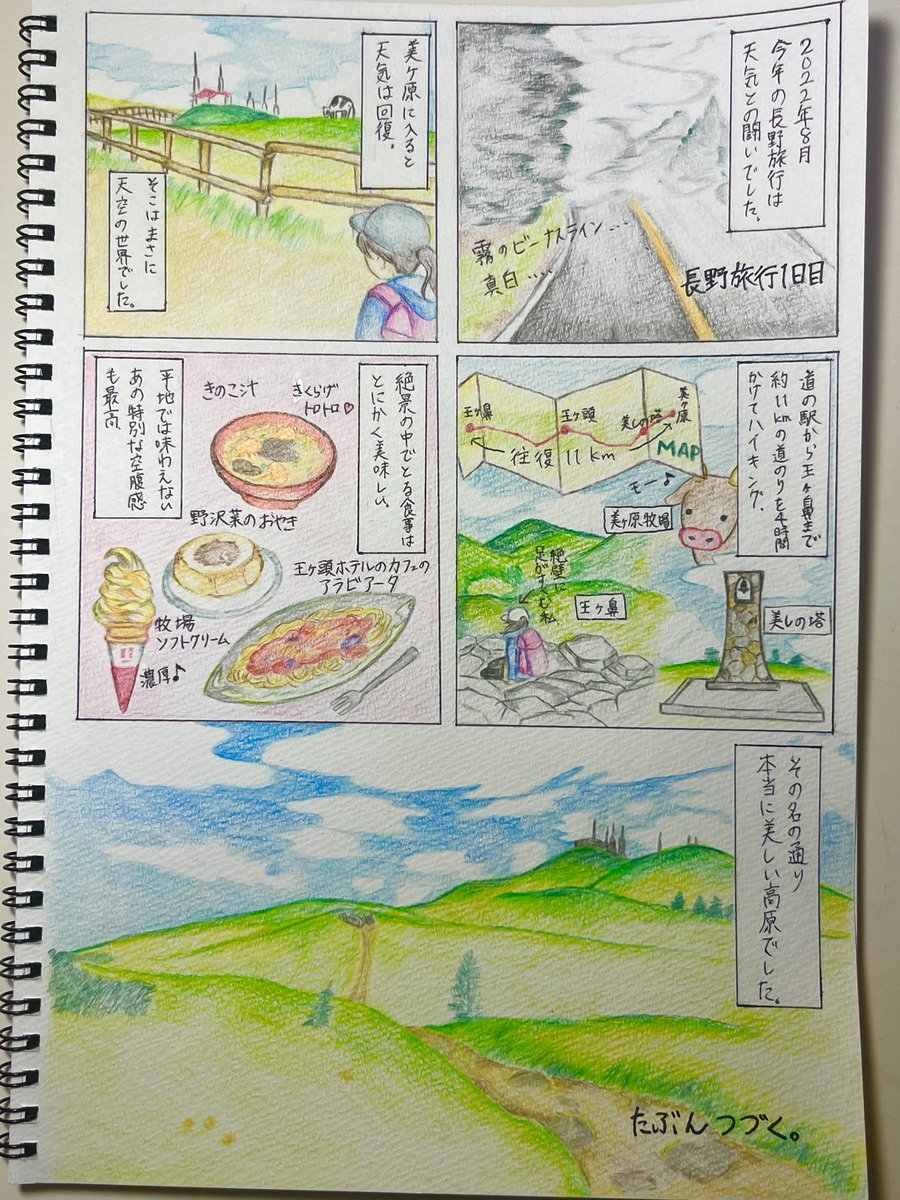 2022年8月
今年の長野旅行は
天気との闘いでした。
霧のビーナスライン…
真白….
長野旅行1日目
美ヶ原に入ると
天気は回復。
そこはまさに
天空の世界でした。
道の駅から王ヶ鼻まで
約11kmの道のりを4時間
かけてハイキング。
王ヶ鼻
王ヶ頭
美しの塔
美ヶ原
往復11km
MAP
モー♪
美ヶ原牧場
絶壁に
足がすくむ私
王ヶ鼻
美しの塔
絶景の中でとる食事は
とにかく美味しい。
平地では味わえない
あの特別な空腹感
も最高。
きのこ汁
きくらげ
トロトロ♡
野沢菜のおやき
王ヶ頭ホテルのカフェの
アラビアータ
牧場
ソフトクリーム
濃厚♪
その名の通り
本当に美しい高原でした。
たぶんつづく。